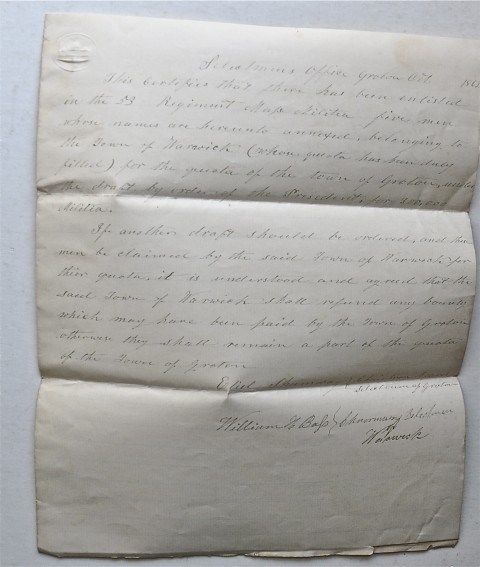 Selectmens Office Groton Oct. 186
This Certifies that there has been enlisted
in the 53 Regiment Mass Militia five men
whose names are hereunto annexed, belonging to
the Town of Warwick (whose quota has been duly
filled) for the quota of the town of Groton, under
the draft by order of the President, for 300,000
Militia.
If another draft should be ordered, and these
men be claimed by the said Town of Warwick for
their quota, it is understood and agreed that the
said Town of Warwick shall refund any bounty
which may have been paid by the Town of Groton
otherwise they shall remain a part of the quota
of the Town of Groton
Selectmen of Groton
William H Bass } Chairman Selectmen
Warwick